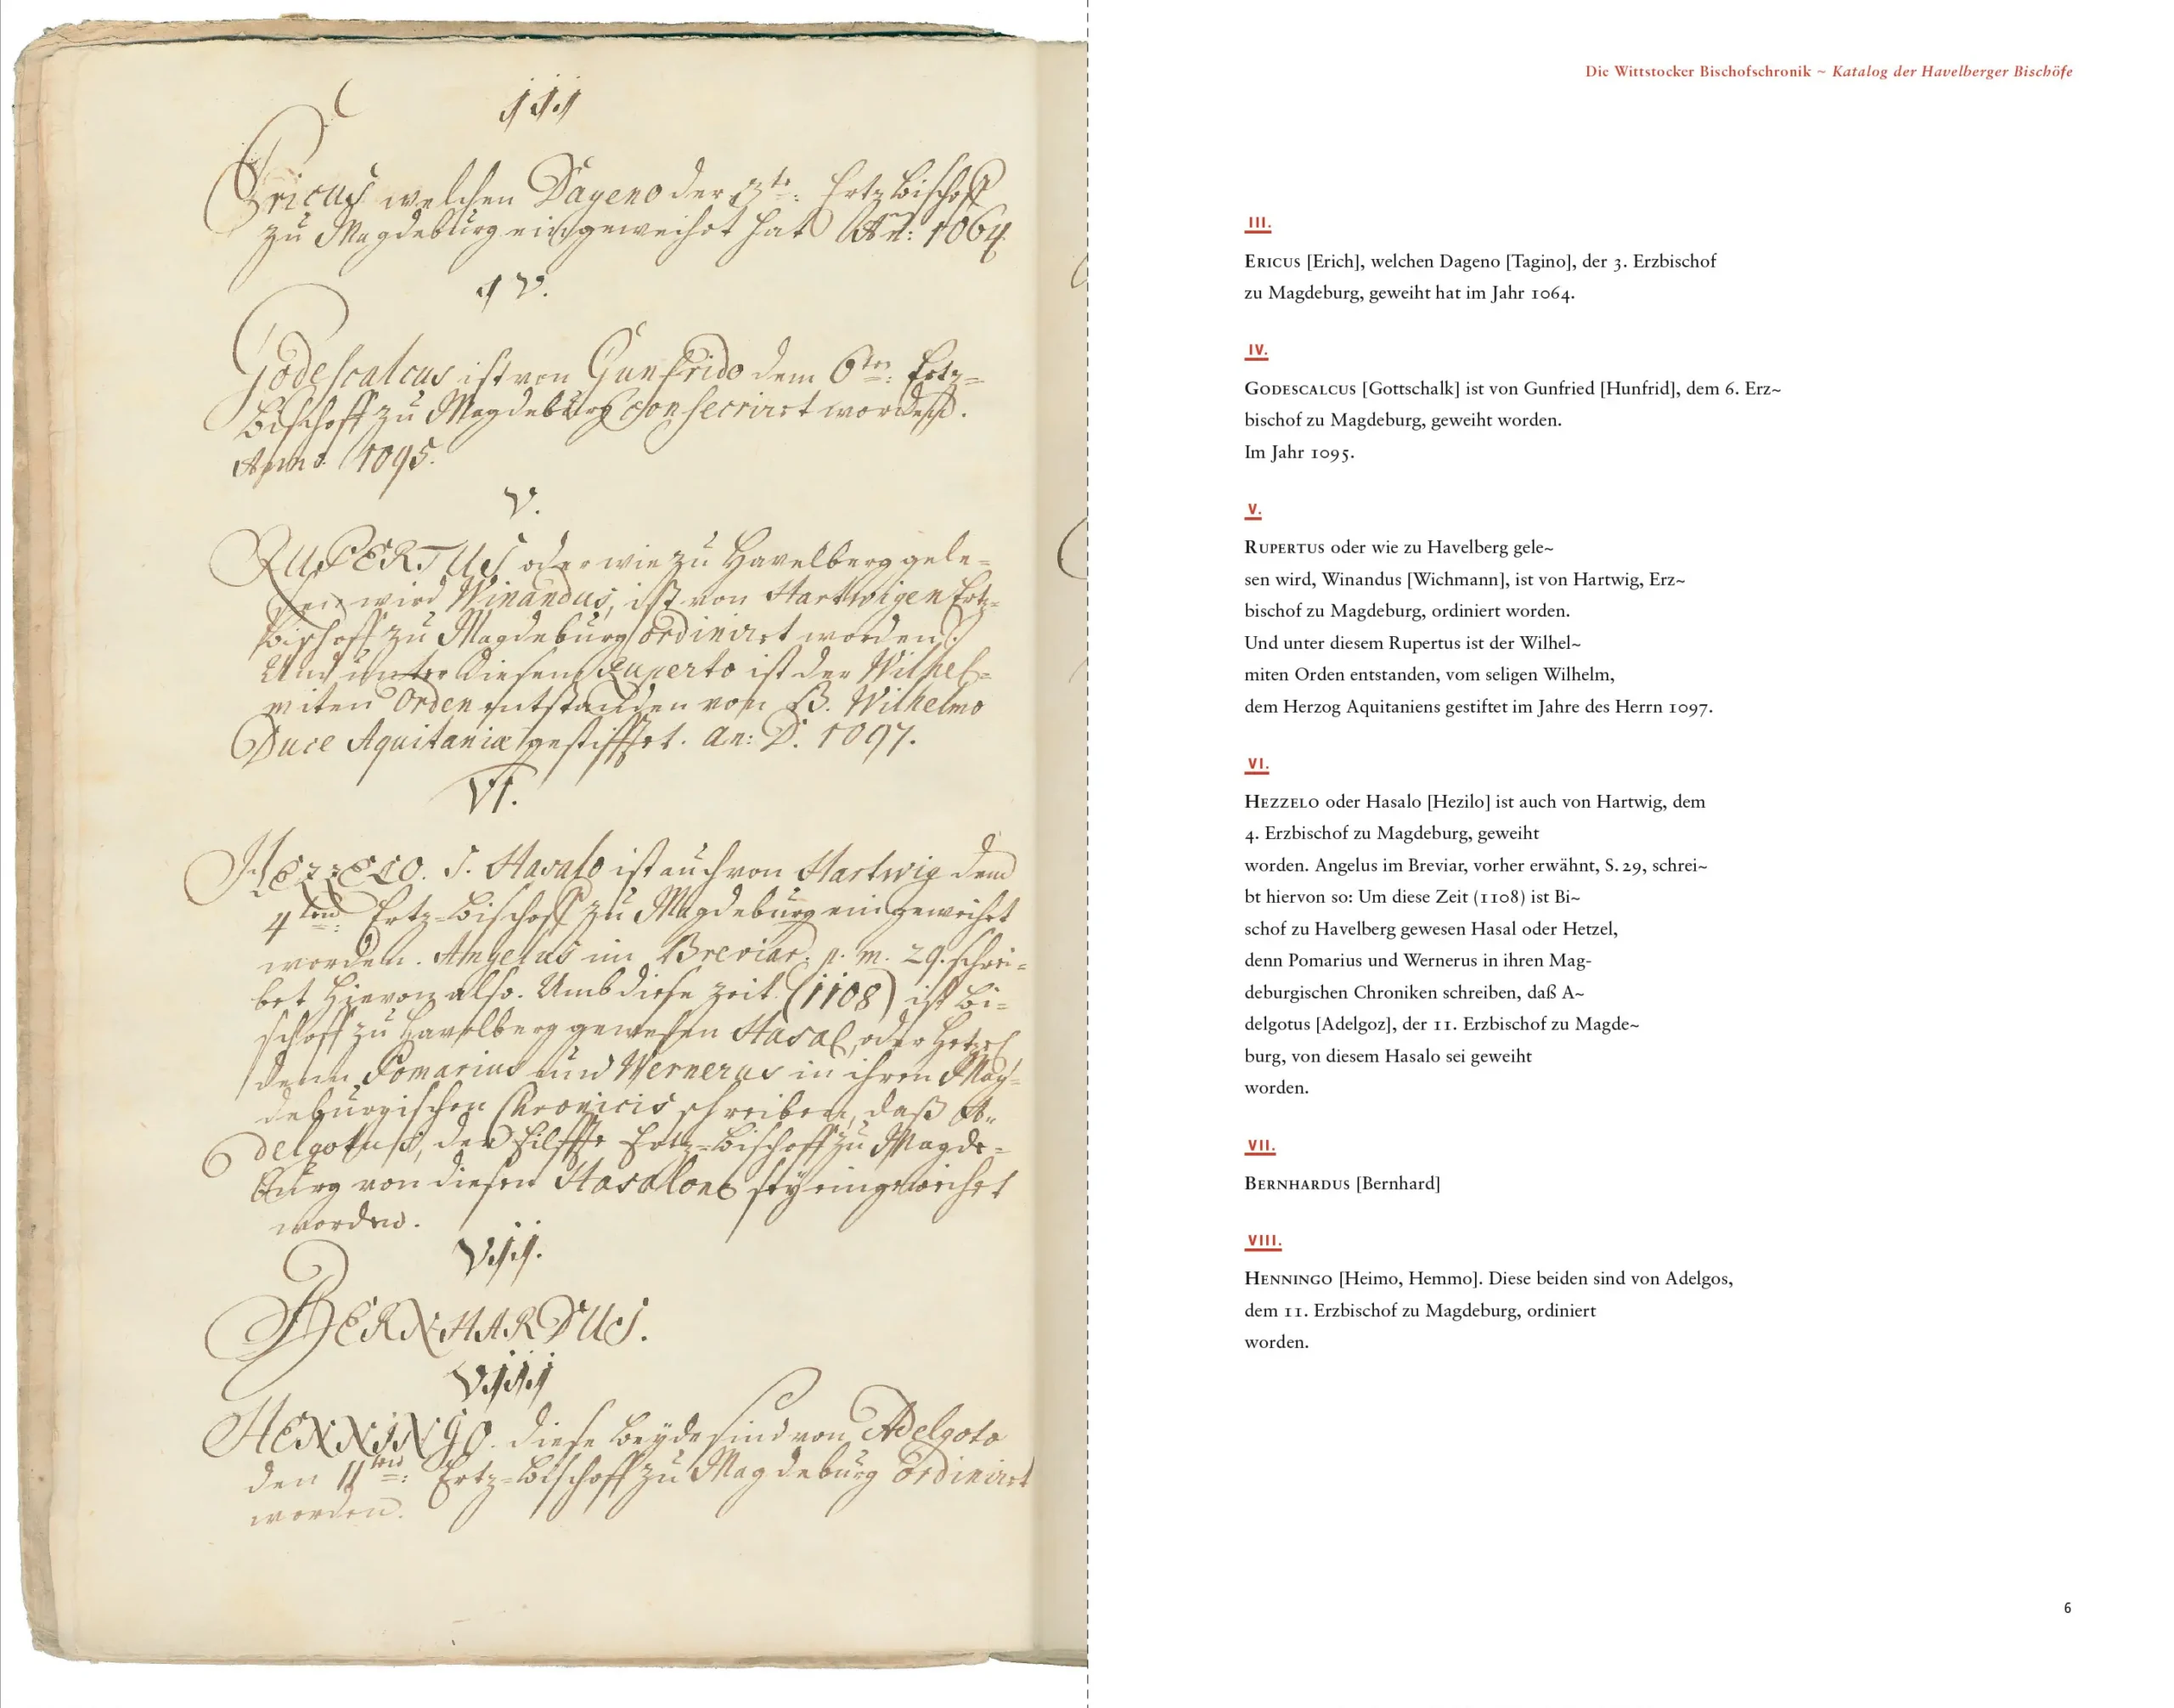 iii
Ericus welchen Dageno der 3te: Ertz Bischoff
zu Magdeburg eingeweihet hat An: 1064
IV.
Godescalcus ist von Gunfrido dem 6ten: Ertz=
Bischoff zu Magdeburg consecriret worden.
Anno 1095.
V.
RUPERTUS oder wie zu Havelberg gele=
sen wird Winandus, ist von Hartwigen Ertz=
Bischoff zu Magdeburg ordiniret worden.
Und unter diesem Ruperto ist der Wilhel=
miten Orden entstanden von B. Wilhelmo
Duce Aquitaniæ gestifftet. an: D. 1097.
VI.
HEZZELO. S. Hasalo ist auch von Hartwig dem
4ten: Ertz=Bischoff zu Magdeburg eingeweihet
worden. Angelus im Breviar. p. m. 29. schrei=
bet hievon also. Umb diese zeit (1108) ist Bi=
schoff zu Havelberg gewesen Hasal, oder Hetzel,
denn Pomarius und Wernerus in ihren Mag=
deburgischen Chronicis schreiben, daß A=
delgotus, der Eilffte Ertz=Bischoff zu Magde=
burg von diesen Hasalone sey eingeweihet
worden.
Vii.
BERNHARDUS.
Viii
HENNINGO. diese beyde sind von Adelgoto
den 11ten: Ertz=Bischoff zu Magdeburg ordiniret
worden.
Die Wittstocker Bischofschronik ~ Katalog der Havelberger Bischöfe
III.
ERICUS [Erich], welchen Dageno [Tagino], der 3. Erzbischof
zu Magdeburg, geweiht hat im Jahr 1064.
IV.
GODESCALCUS [Gottschalk] ist von Gunfried [Hunfrid], dem 6. Erz~
bischof zu Magdeburg, geweiht worden.
Im Jahr 1095.
V.
RUPERTUS oder wie zu Havelberg gele~
sen wird, Winandus [Wichmann], ist von Hartwig, Erz~
bischof zu Magdeburg, ordiniert worden.
Und unter diesem Rupertus ist der Wilhel~
miten Orden entstanden, vom seligen Wilhelm,
dem Herzog Aquitaniens gestiftet im Jahre des Herrn 1097.
VI.
HEZZELO oder Hasalo [Hezilo] ist auch von Hartwig, dem
4. Erzbischof zu Magdeburg, geweiht
worden. Angelus im Breviar, vorher erwähnt, S. 29, schrei~
bt hiervon so: Um diese Zeit (1108) ist Bi~
schof zu Havelberg gewesen Hasal oder Hetzel,
denn Pomarius und Wernerus in ihren Mag-
deburgischen Chroniken schreiben, daß A~
delgotus [Adelgoz], der 11. Erzbischof zu Magde~
burg, von diesem Hasalo sei geweiht
worden.
VII.
BERNHARDUS [Bernhard]
VIII.
HENNINGO [Heimo, Hemmo]. Diese beiden sind von Adelgos,
dem 11. Erzbischof zu Magdeburg, ordiniert
worden.
6